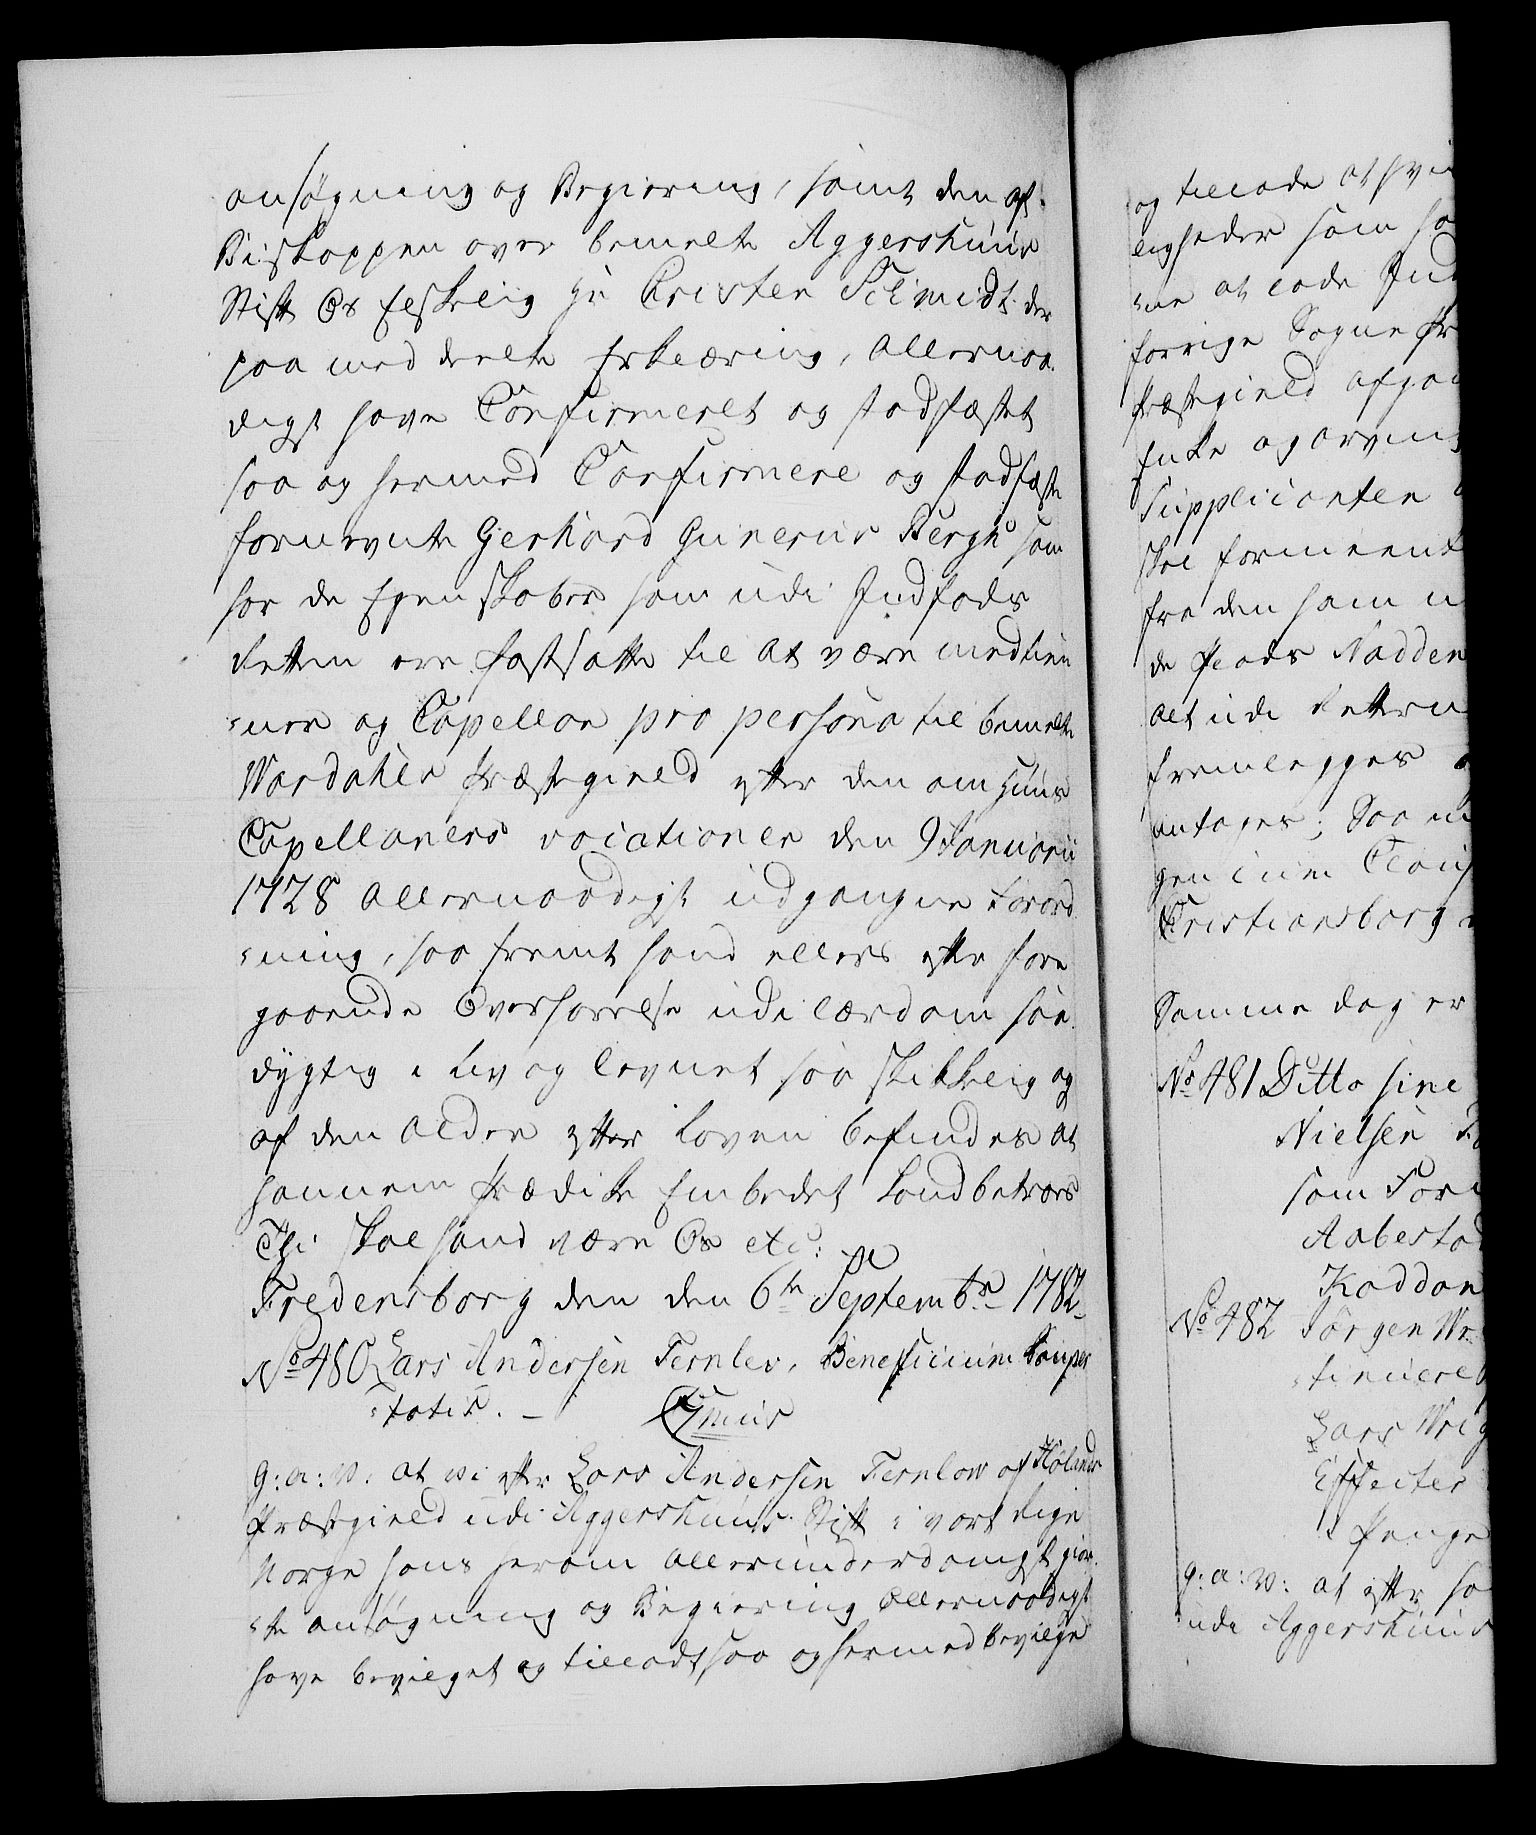 ansøgning og Begiering, samt den af
Biskoppen over bemelte Aggershuus
Stift Os Elskelig Hr Christen Schmidt der
paa meddeelte Erklæring, Allernaa-
digst have Confirmeret og stadfæstet
saa og hermed Confirmere og stadfæste
fornevnte Gerhard Gunerus Bergh som
har de Egenskaber som udi Indføds
Retten ere fastsatte til at være medtien
-ner og Capellan pro persona til bemelte
Wardahls Præstegield efter den om Huus
Capellaners vocationer den 9 Januarii
1728 Allernaadigst udgangne Forord
-ning, saa fremt hand ellers efter fore
gaaende Overhørelse udi lærdom saa
dygtig i Liv og levnet saa skikkelig og
af den alder efter Loven befindes at
hannem Prædike Embedet kand betroes
Thi skal hand være Os etc:
Fredensborg den den 6te Septembr 1782
No 480 Lars Andersen Ternlev, Beneficium Pauper
-tatis. – Gratis
G: a: V: at wi efter Lars Andersen Fernlow af Hølands
Præstegield udi Aggershuus Stift i vort Rige
Norge hans herom allerunderdanigst gior-
-te ansøgning og Begiering allernaadigst
have bevilget og tilladt saa og hermed bevilge
og tillade at
ligheder som
-ne at lade
forrige Sogne Pr
Præstegield
Enke og arvin
Supplicanten
skal formeent
fra den som
de
alt udi Retten
fremlegges
antages; Saa
gen
Christiansborg
Samme dag er
No 481 Ditto sine
Nielsen
som For
No 482 Jørgen
Lars
Effecter
Penge
G: a: V: at efter
udi Aggershuus